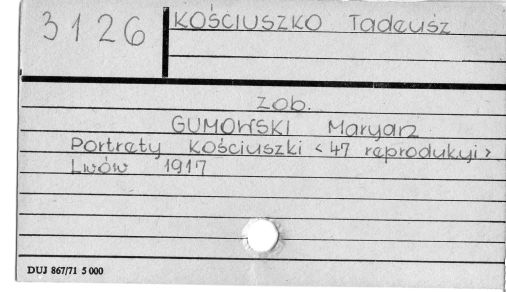 3126
KOŚCIUSZKO Tadeusz
zob.
GUMOWSKI Maryan
Portrety Kościuszki <47 reprodukcji>
Lwów 1917
DUJ 867/71 5 000